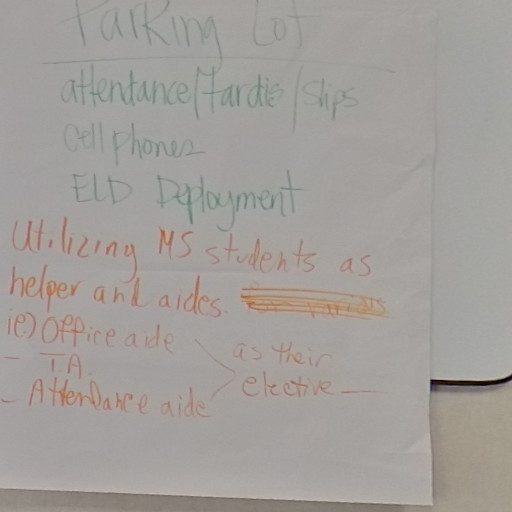 Parking Lot
attendance/Tardie/Slips
Cell phones
ELD Deployment
Utilizing MS students as
helper and aides.
ie) Office aide
- TA.
- Attendance aide
as their
elective —